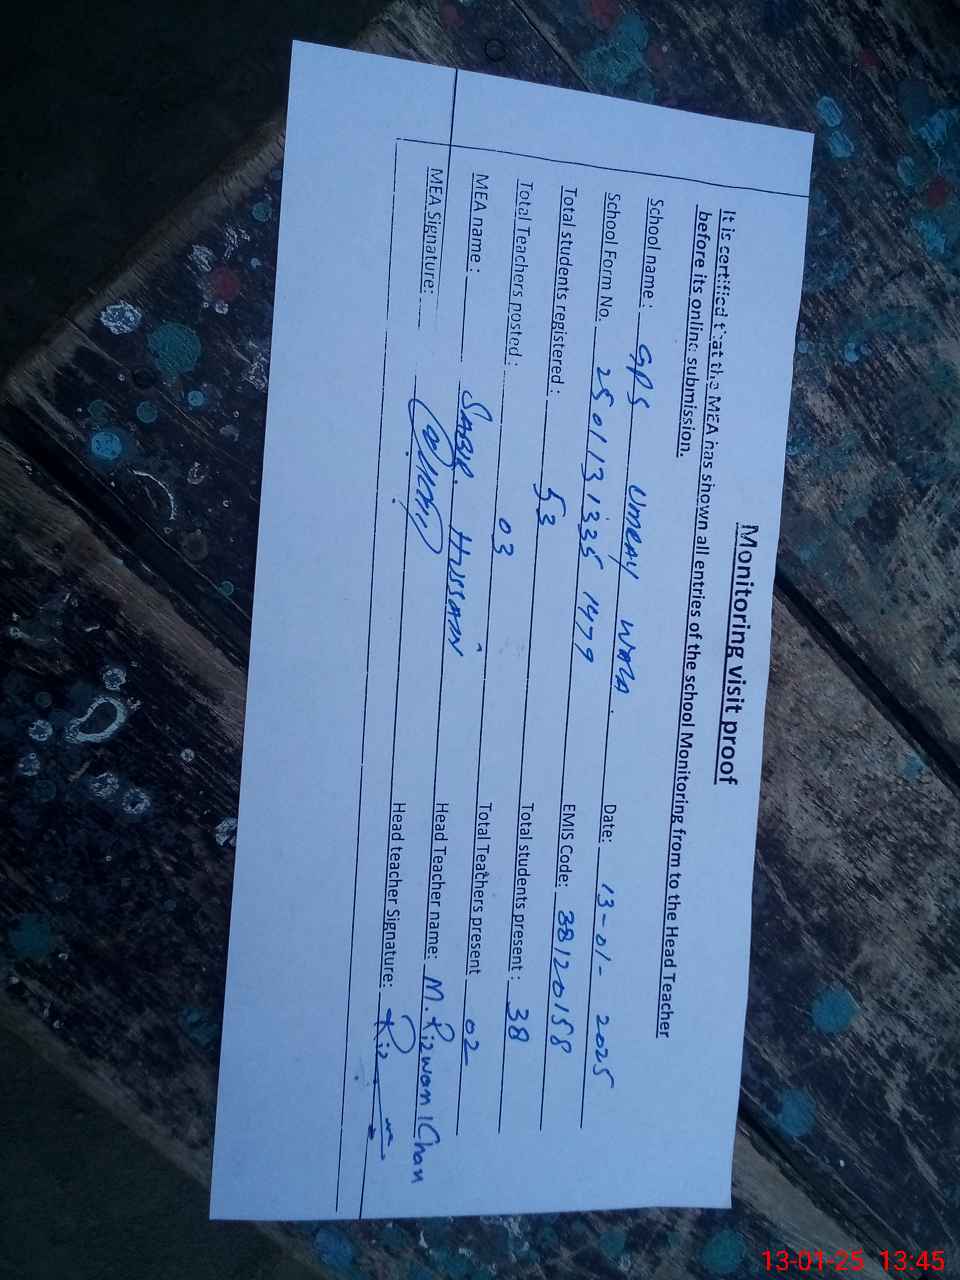 Monitoring visit proof
It is certified that the MEA has shown all entries of the school Monitoring from to the Head Teacher
before its online submission.
School name : GPS UMRAY WALA. Date: 13-01-2025
School Form No. 25011313351479 EMIS Code: 38120158
Total students registered : 53 Total students present : 38
Total Teachers posted : 03 Total Teathers present 02
MEA name : SABIR. HUSSAIN Head Teacher name: M. Rizwan Khan
MEA Signature: Head teacher Signature: Riz
13-01-25 13:45